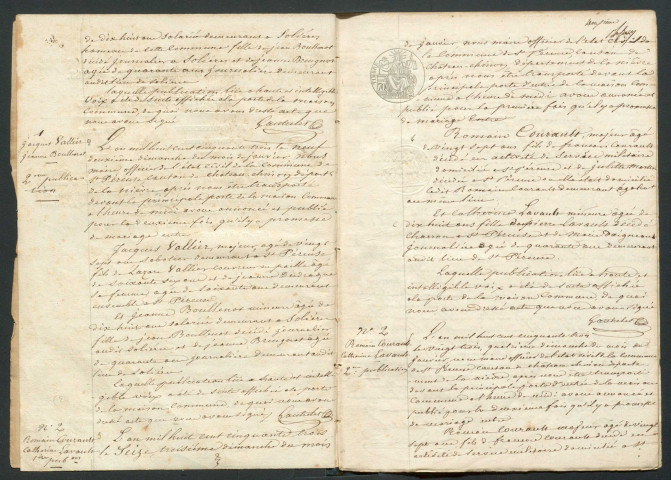 de dix huit ans salariée demeurant à Solière,
hameau de cette Commune fille de jean Boullenot
décédé journalier à Solière et de jeanne Bouquet
agée de quarante ans journalière demeurant
audit lieu de Solière
laquelle publication lue à haute et intelligible
voix a été de suite affichée à la porte de la maison
Commune, de quoi nous avons dressé acte que
nous avons signé
Gautrelet
1
Jacques Vallier &
Jeanne Boullenot
2me publica
tion
L'an mil huit cent cinquante trois le neuf
deuxième dimanche du mois de janvier, Nous
maire officier de l'état civil de la Commune de
St Péreuse canton de chatou chinon département
de la nièvre après nous être transporté
devant la principale porte de la maison Commune
à l'heure de midi avons annoncé et publié
pour la deuxième fois qu'il y a promesse
de mariage entre
Jacques Vallier, majeur agé de vingt
sept ans salarié demeurant à St Péreuse
fils de Lazare Vallier couvreur en paille agé
de soixante six ans et de jeanne
sa femme agée de soixante ans demeurant
ensemble à St Péreuse
Et Jeanne Boullenot mineure agée de
dix huit ans salariée demeurant à Solière
fille de jean Boullenot décédé journalier
audit Solière et de jeanne Bouquet agée
de quarante ans journalière demeurant audit
lieu de Solière
Laquelle publication lue à haute et intelli
gible voix a été de suite affichée à la porte
de la maison commune, de quoi nous avons
dressé acte que nous avons signé Gautrelet
No 2
Romain Courault
Catherine Lavault
1ère publ on
L'an mil huit cent cinquante trois
le Seize, troisième dimanche du mois
de janvier, nous maire officier de l'état civil de
la Commune de St Péreuse canton de
chateau chinon, département de la nièvre
après nous être transporté devant la
principale porte d'entrée de la maison Com
mune à l'heure de midi avons annoncé et
publié pour la première fois qu'il y a promesse
de mariage entre
Romain Courault, majeur agé
de vingt sept ans fils de francois Courault
décédé en activité de service militaire
domicilié à St Péreuse et de
décédée à St Péreuse
ledit Romain Courault demeurant
au même lieu
Et Catherine Lavault mineure agée de
dix huit ans fille de Pierre Lavault décédé
Charron à St Péreuse et de Marie
journalière agée de quarante ans demeurant
audit lieu de St Péreuse
Laquelle publication lue à haute et
intelligible voix a été de suite affichée
à la porte de la maison Commune de quoi
nous avons dressé acte que nous avons signé
Gautrelet
No 2
Romain Courault
Catherine Lavault
2me publication
L'an mil huit cent cinquante trois
le vingt trois, quatrième dimanche du mois de
janvier, nous maire officier de l'état civil de la commune
de St Péreuse canton de chateau chinon départe
ment de la nièvre après nous être transporté
devant la principale porte d'entrée de la maison
commune à l'heure de midi avons annoncé et
publié pour la deuxième fois qu'il y a promesse
de mariage entre
Romain Courault majeur agé de vingt
sept ans fils de francois Courault décédé en
activité de service militaire domicilié à St